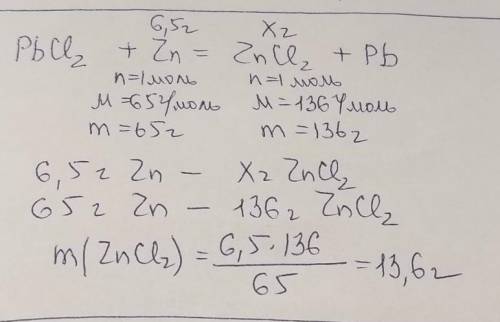 6,5г X г
PbCl₂ + Zn = ZnCl₂ + Pb
n=1моль n=1моль
M=65г/моль M=136г/моль
m=65г m=136г
6,5г Zn – Xг ZnCl₂
65г Zn – 136г ZnCl₂
m(ZnCl₂) = 6,5·136 / 65 = 13,6г